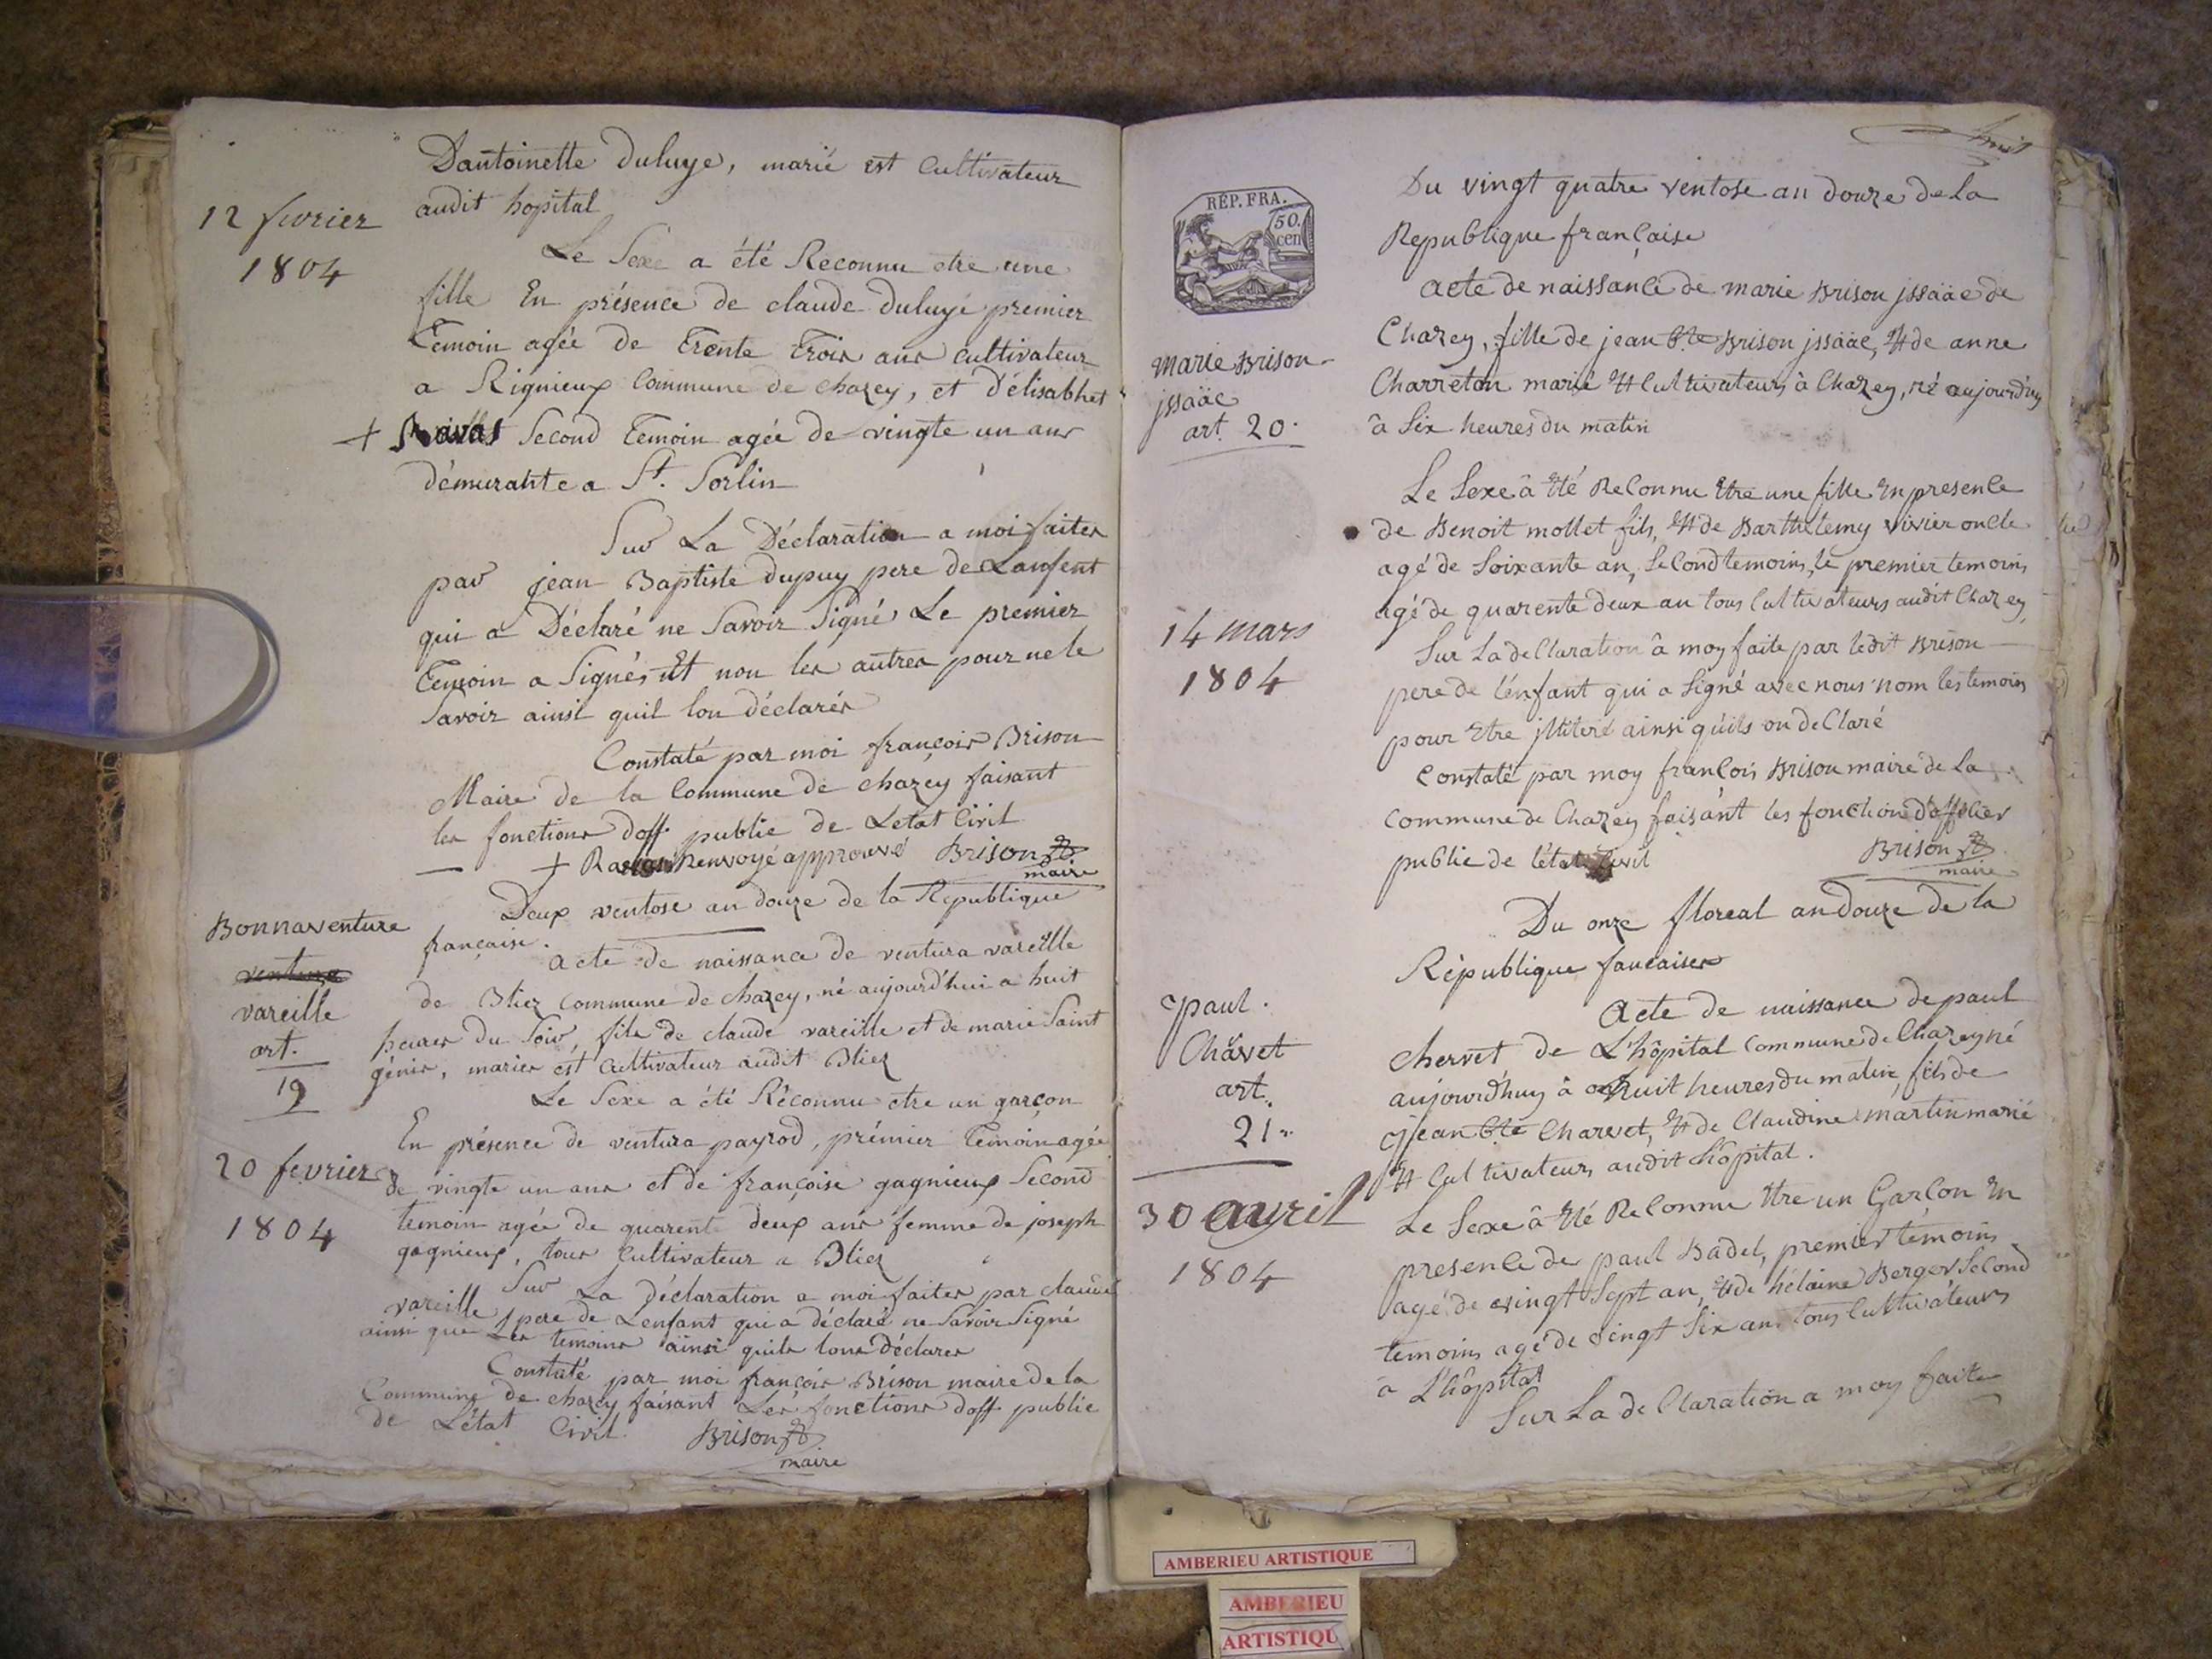 Dantoinette duluye, marié est Cultivateur
audit hopital
12 fevrier
1804
Le Sexe a été Reconnu etre une
fille En présence de claude duluye premier
Temoin agée de Trente Trois ans cultivateur
a Rignieux Commune de chazey, et d'élisabhet
+ Second Temoin agée de vingte un ans
démurante a St. Sorlin
Sur La Déclaration a moi faites
par jean Baptiste dupuy pere de Lanfent
qui a Déclaré ne Savoir Signé Le premier
Temoin a Signés Et non les autres pour ne le
Savoir ainsi quil lon déclarés
Constaté par moi françois Brison
Maire de la Commune de chazey faisant
les fonctions d'off. public de Letat Civil
+ Renvoyé approuvé Brison
maire
Deux ventose an douze de la Republique
française.
Bonnaventure
ventura
vareille
art.
19
acte de naissance de ventura vareille
de Bliez commune de chazey, né aujourd'hui a huit
heures du Soir, fils de claude vareille et de marie Saint
génis, maries est Cultivateur audit Bliez
Le Sexe a été Réconnu etre un garçon
En présence de ventura payrod, prémier Temoin agée
20 fevrier
1804
de vingte un ans et de françoise gagnieux Second
temoin agée de quarente deux ans femme de joseph
gagnieux, tous Cultivateur a Bliez
Sur La Déclaration a moi faites par claude
vareille pere de Lenfant qui a déclaré ne Savoir Signé
ainsi que Les temoins ainsi quils lons déclares
Constaté par moi françois Brison maire de la
Commune de chazey faisant Les fonctions d'off public
de L'état Civil. Brison
maire
RÉP. FRA.
50.
cen
Du vingt quatre ventose an douze de La
Republique française
marie Brison
jssäac
art. 20.
acte de naissance de marie Brison jssääc de
Chazey, fille de jean Bte Brison jssääc, Et de anne
Charreton marié Et Cultivateurs à Chazey, né aujourd'uy
à Six heures du matin
Le Sexe à Eté ReConnu Etre une fille En presence
de Benoit mollet fils, Et de Barthelemy vivier oncle
agé de Soixante an, SeCond temoins, Le premier temoins
agé de quarente deux an tous Cultivateurs audit Chazey,
14 mars
1804
Sur La deClaration à moy faite par ledit Brison
pere de L'enfant qui a Signé avec nous nom les temoins
pour Etre jlliteré ainsi quils on deClaré
Constaté par moy françois Brison maire de La
commune de Chazey faisant les fonction d'officier
public de l'état Civil Brison
maire
Du onze floreal an douze de la
République fancaises
paul.
Chàvet
art.
21.
Acte de naissance de paul
Chervet de L'hôpital Commune de Chazey né
aujourd'huy à huit heures du matin, fils de
jean Bte Charvet, Et de Claudine martin marié
Et Cultivateurs audit L'hôpital.
30 avril
1804
Le Sexe à Eté ReConnu Etre un GarCon En
presence de paul Badel, premier temoins
agé de vingt Sept an, Et de hélaine Berger SeCond
temoins agé de vingt Six an, tous Cultivateurs
à L'hôpital
Sur La deClaration a moy faite
AMBERIEU ARTISTIQUE
AMBERIEU
ARTISTIQU